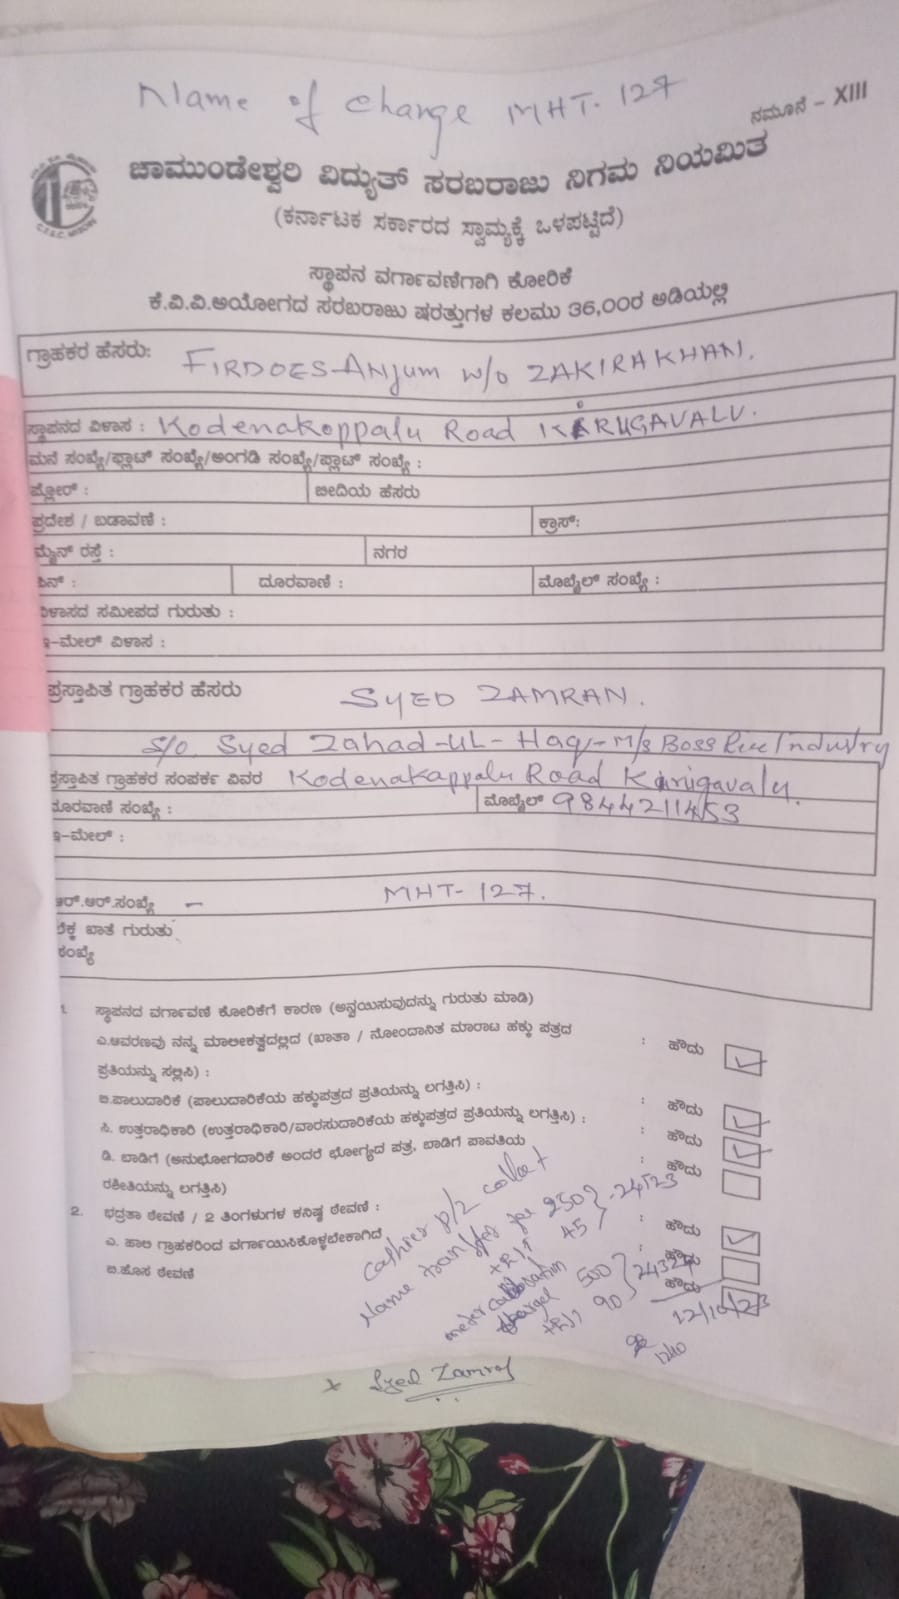 Name of Change MHT-127
ನಮೂನೆ – XIII
ಚಾಮುಂಡೇಶ್ವರಿ ವಿದ್ಯುತ್ ಸರಬರಾಜು ನಿಗಮ ನಿಯಮಿತ
(ಕರ್ನಾಟಕ ಸರ್ಕಾರದ ಸ್ವಾಮ್ಯಕ್ಕೆ ಒಳಪಟ್ಟಿದೆ)
ಸ್ಥಾಪನ ವರ್ಗಾವಣೆಗಾಗಿ ಕೋರಿಕೆ
ಕೆ.ವಿ.ವಿ.ಆಯೋಗದ ಸರಬರಾಜು ಷರತ್ತುಗಳ ಕಲಮು 36,00ರ ಅಡಿಯಲ್ಲಿ
ಗ್ರಾಹಕರ ಹೆಸರು: FIRDOES-Anjum W/o ZAKIRAKHAN.
ಸ್ಥಾಪನದ ವಿಳಾಸ : Kodenakoppalu Road KIRUGAVALU.
ಮನೆ ಸಂಖ್ಯೆ/ಫ್ಲಾಟ್ ಸಂಖ್ಯೆ/ಅಂಗಡಿ ಸಂಖ್ಯೆ/ಪ್ಲಾಟ್ ಸಂಖ್ಯೆ :
ಫ್ಲೋರ್ : ಬೀದಿಯ ಹೆಸರು
ಪ್ರದೇಶ / ಬಡಾವಣೆ : ಕ್ರಾಸ್:
ಮೈನ್ ರಸ್ತೆ : ನಗರ
ಪಿನ್ : ದೂರವಾಣಿ : ಮೊಬೈಲ್ ಸಂಖ್ಯೆ :
ವಿಳಾಸದ ಸಮೀಪದ ಗುರುತು :
ಇ-ಮೇಲ್ ವಿಳಾಸ :
ಪ್ರಸ್ತಾಪಿತ ಗ್ರಾಹಕರ ಹೆಸರು SYED ZAMRAN.
S/o. Syed Zahad-UL-Haq-M/s Boss Rice Industry
ಪ್ರಸ್ತಾಪಿತ ಗ್ರಾಹಕರ ಸಂಪರ್ಕ ವಿವರ Kodenakappalu Road Kirugavalu.
ದೂರವಾಣಿ ಸಂಖ್ಯೆ : ಮೊಬೈಲ್ 9844211453
ಇ-ಮೇಲ್ :
ಆರ್.ಆರ್.ಸಂಖ್ಯೆ – MHT-127.
ಲೆಕ್ಕ ಖಾತೆ ಗುರುತು
ಸಂಖ್ಯೆ
1. ಸ್ಥಾಪನದ ವರ್ಗಾವಣೆ ಕೋರಿಕೆಗೆ ಕಾರಣ (ಅನ್ವಯಿಸುವುದನ್ನು ಗುರುತು ಮಾಡಿ)
ಎ.ಆವರಣವು ನನ್ನ ಮಾಲೀಕತ್ವದಲ್ಲಿದೆ (ಖಾತಾ / ನೋಂದಾನಿತ ಮಾರಾಟ ಹಕ್ಕು ಪತ್ರದ : ಹೌದು
ಪ್ರತಿಯನ್ನು ಸಲ್ಲಿಸಿ) :
ಬಿ.ಪಾಲುದಾರಿಕೆ (ಪಾಲುದಾರಿಕೆಯ ಹಕ್ಕುಪತ್ರದ ಪ್ರತಿಯನ್ನು ಲಗತ್ತಿಸಿ) : : ಹೌದು
ಸಿ. ಉತ್ತರಾಧಿಕಾರಿ (ಉತ್ತರಾಧಿಕಾರಿ/ವಾರಸುದಾರಿಕೆಯ ಹಕ್ಕುಪತ್ರದ ಪ್ರತಿಯನ್ನು ಲಗತ್ತಿಸಿ) : : ಹೌದು
ಡಿ. ಬಾಡಿಗೆ (ಅನುಭೋಗದಾರಿಕೆ ಅಂದರೆ ಭೋಗ್ಯದ ಪತ್ರ, ಬಾಡಿಗೆ ಪಾವತಿಯ : ಹೌದು
ರಶೀತಿಯನ್ನು ಲಗತ್ತಿಸಿ)
2. ಭದ್ರತಾ ಠೇವಣಿ / 2 ತಿಂಗಳುಗಳ ಕನಿಷ್ಠ ಠೇವಣಿ : : ಹೌದು
ಎ. ಹಾಲಿ ಗ್ರಾಹಕರಿಂದ ವರ್ಗಾಯಿಸಿಕೊಳ್ಳಬೇಕಾಗಿದೆ ಹೌದು
ಬಿ.ಹೊಸ ಠೇವಣಿ ಹೌದು
Cashier p/z collect
Name transfer fee 250
45
meter calibration
500
90
12/10/23
12/10
x Syed Zamran